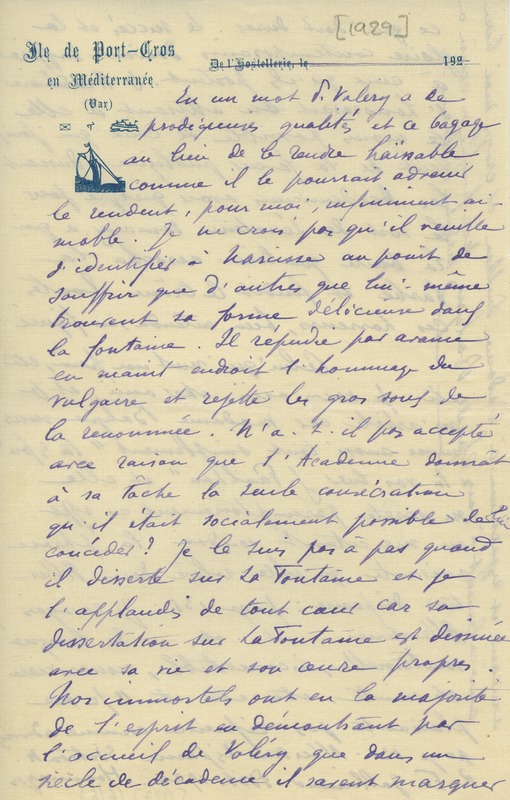 [1929]
Ile de Port-Cros
en Méditerranée
(Var)
De l'Hostellerie, le 192
En un mot P. Valéry a de
prodigieuses qualités et ce bagage
au lieu de le rendre haïssable
comme il le pourrait advenir
le rendent, pour moi, infiniment ai-
mable. Je ne crois pas qu'il veuille
s'identifier à Narcisse au point de
souffrir que d'autres que lui-même
trouvent sa forme délicieuse dans
la fontaine. Il répudie par avance
en maint endroit l'hommage du
vulgaire et rejette les gros sous de
la renommée. N'a-t-il pas accepté
avec raison que l'Académie donnât
à sa tâche la seule consécration
qu'il était socialement possible de lui
concéder? Je le suis pas à pas quand
il disserte sur La Fontaine et je
l'applaudis de tout cœur car sa
dissertation sur La Fontaine est dessinée
avec sa vie et son œuvre propres.
Nos immortels ont en la majorité
de l'esprit en démontrant par
l'accueil de Valéry que dans un
siècle de décadence il savent marquer